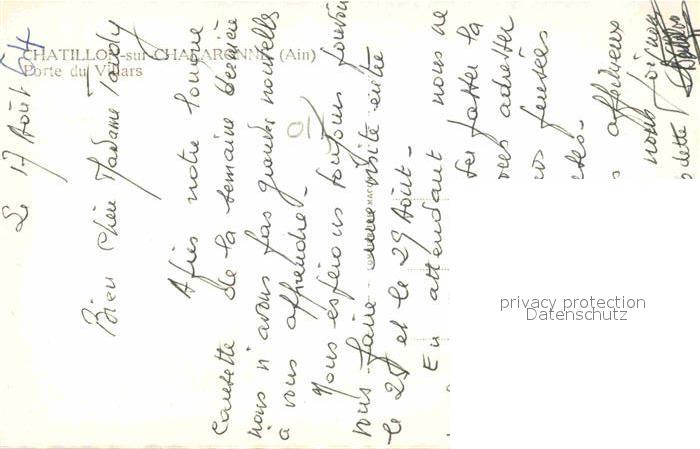 CHATILLON-sur-CHALARONNE (Ain)
Porte du Villars
Le 17 Août 64
Bien chère Madame Tardy
Après notre longue
causette de la semaine dernière
nous n'avons pas grandes nouvelles
à vous apprendre.
Nous espérons toujours pouvoir
vous faire une visite entre
le 25 et le 29 Août.
En attendant nous ne
la
adresser
pensées
affectueux
nous
privacy protection
Datenschutz